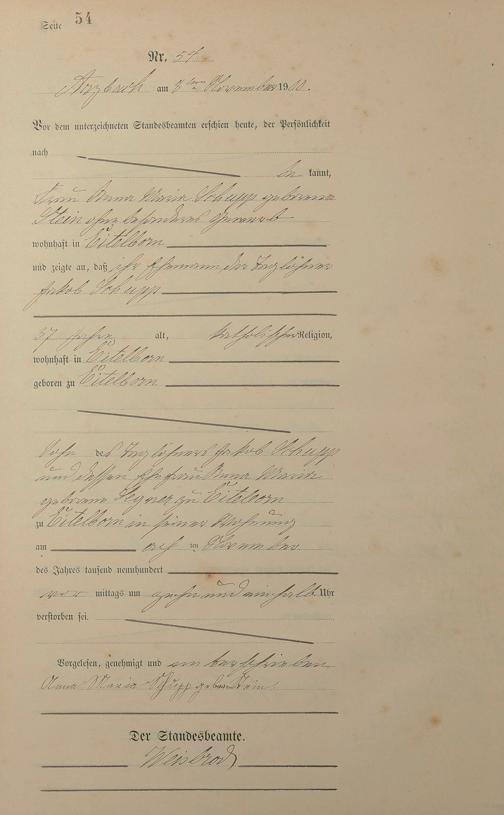 Seite 54
Nr. 54
Arzbach am 8ten November 1900.
Vor dem unterzeichneten Standesbeamten erschien heute, der Persönlichkeit
nach
be kannt,
Frau Anna Maria Schupp geborene
Stein ohne besonderes Gewerbe
wohnhaft in Eitelborn
und zeigte an, daß ihr Ehemann, der Taglöhner
Jakob Schupp
37 Jahre alt, katholischer Religion,
wohnhaft in Eitelborn
geboren zu Eitelborn
Sohn des Taglöhners Jakob Schupp
und dessen Ehefrau Anna Maria
geborene zu Eitelborn
zu Eitelborn in seiner Wohnung
am acht im November
des Jahres tausend neunhundert
vor mittags um zehn und ein halb Uhr
verstorben sei.
Vorgelesen, genehmigt und unterschrieben
Anna Maria Schupp geborene Stein
Der Standesbeamte.
Weisbrod